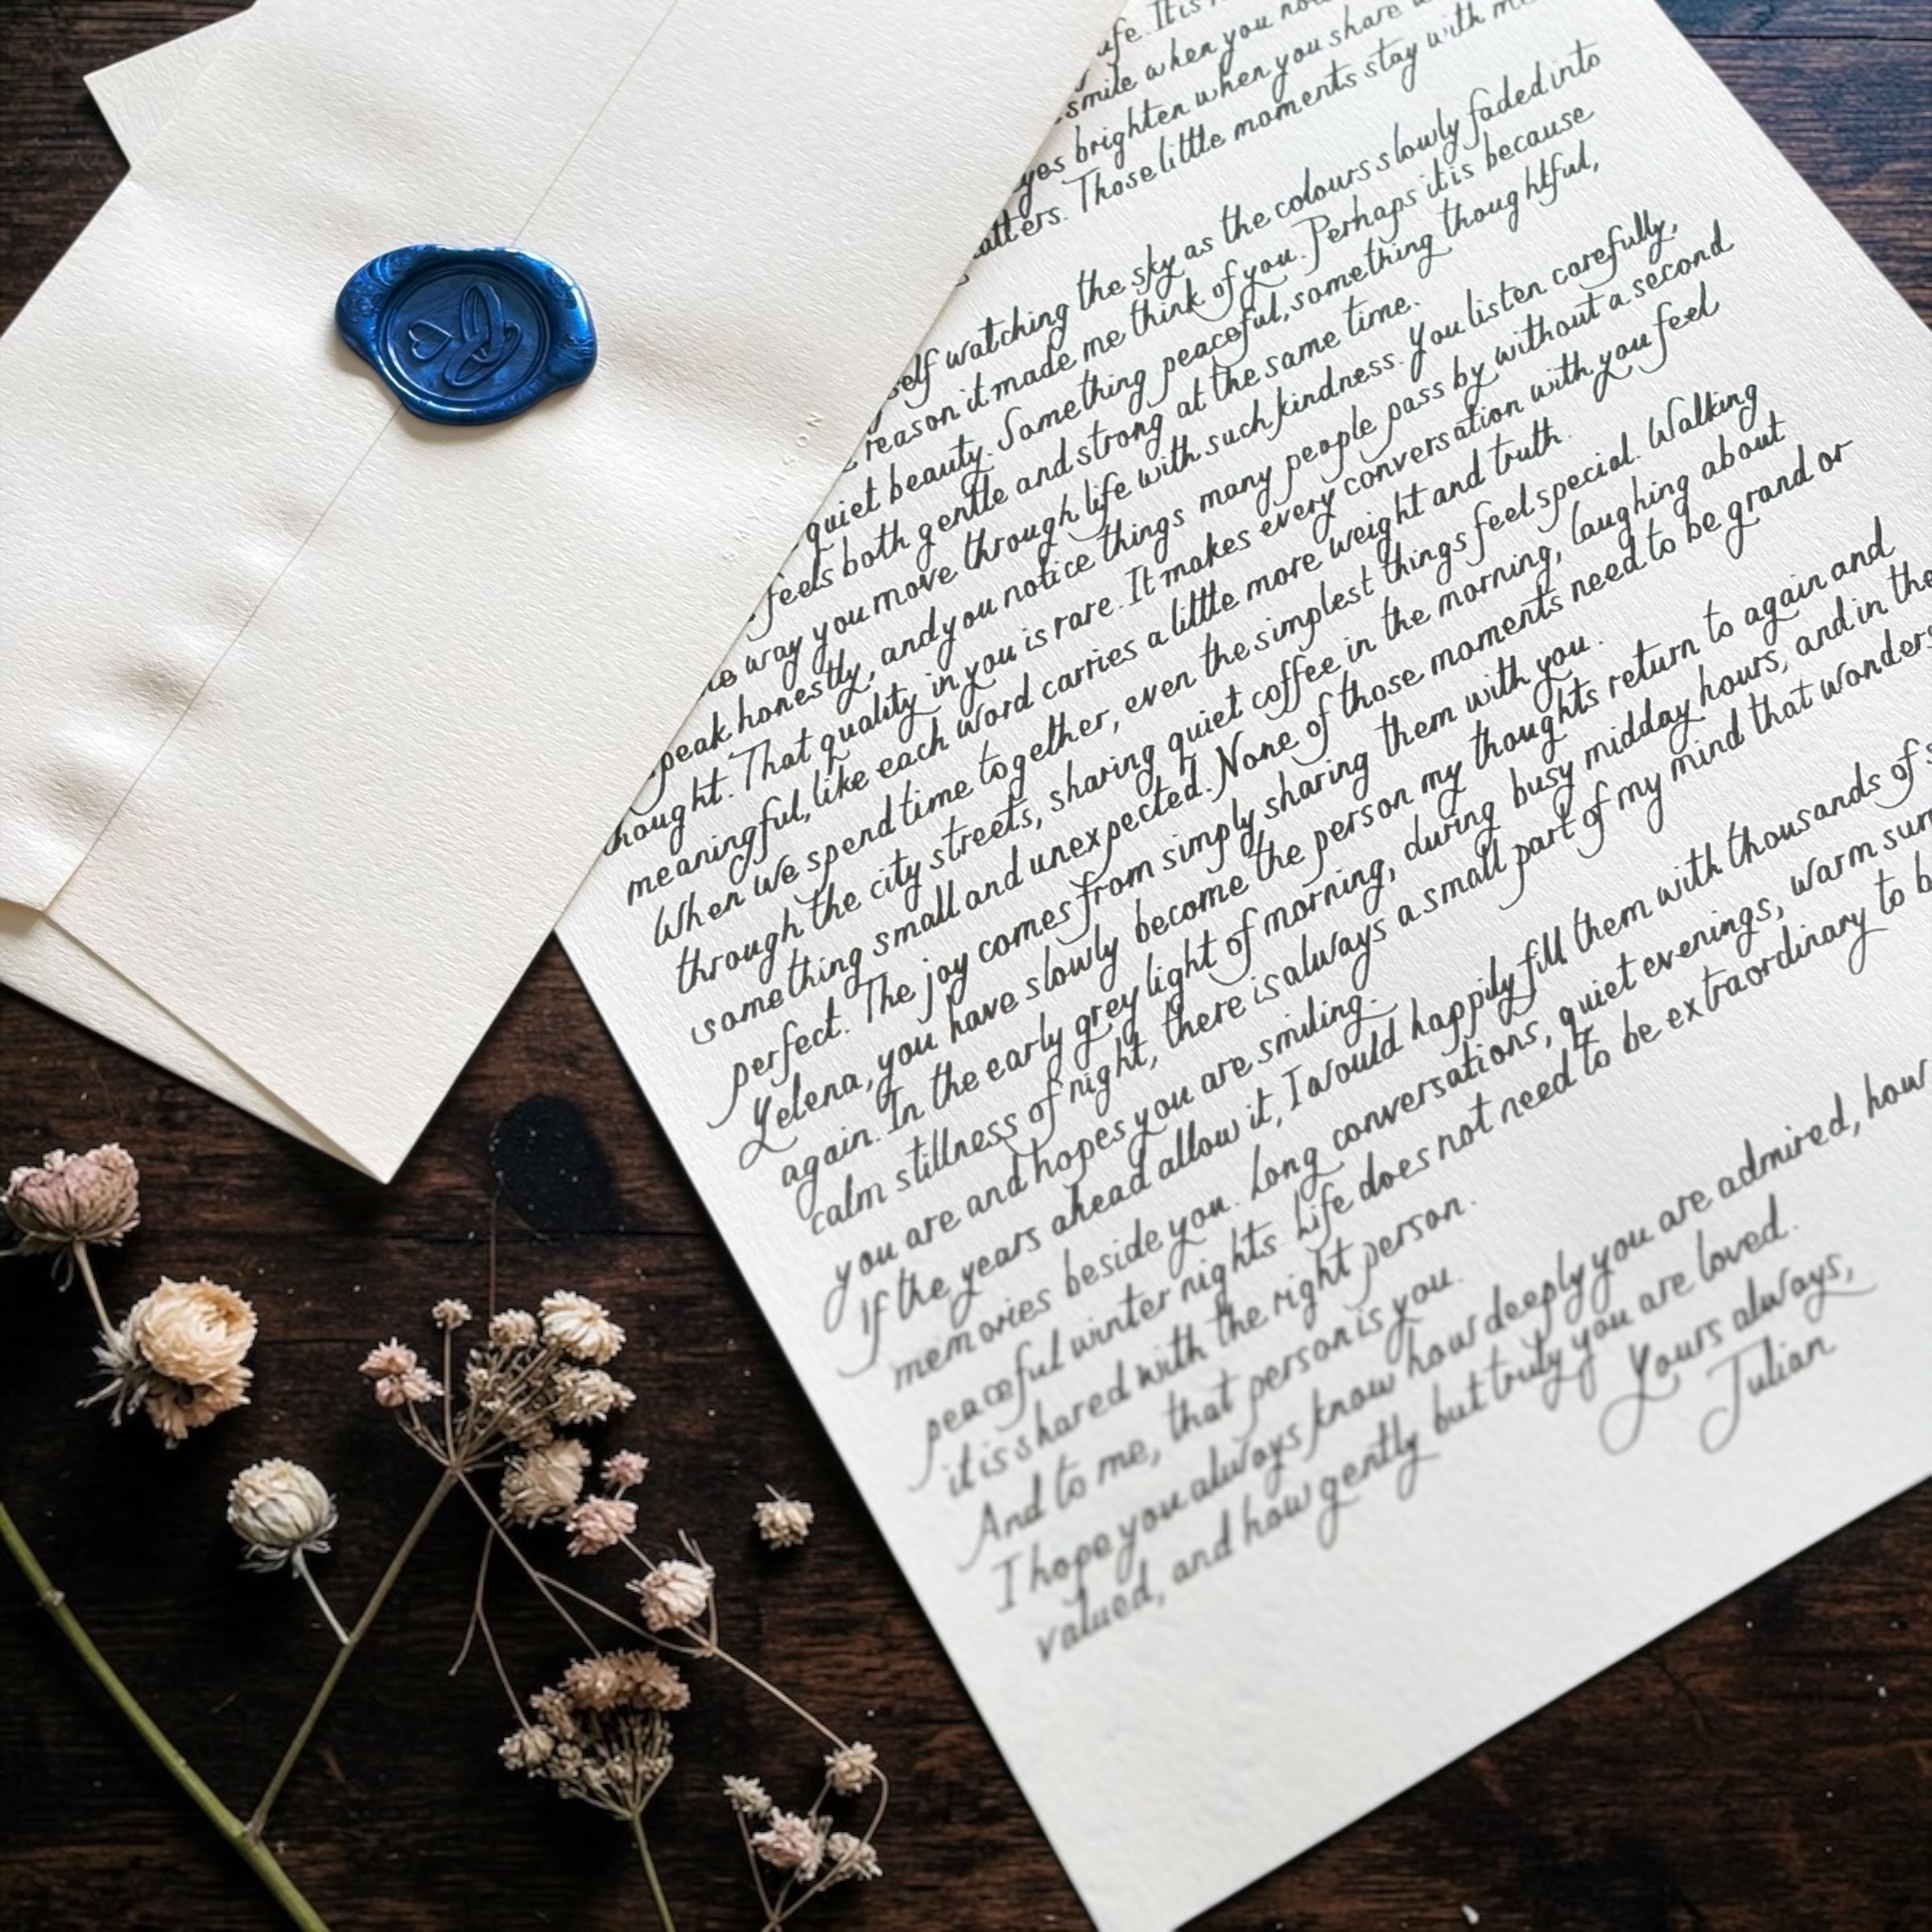 life. It is
smile when you
brighten when you share
Those little moments stay with
watching the sky as the colours slowly faded into
reason it made me think of you. Perhaps it is because
quiet beauty. Something peaceful, something thoughtful,
feels both gentle and strong at the same time.
way you move through life with such kindness. You listen carefully,
speak honestly, and you notice things many people pass by without a second
thought. That quality in you is rare. It makes every conversation with you feel
meaningful, like each word carries a little more weight and truth.
When we spend time together, even the simplest things feel special. Walking
through the city streets, sharing quiet coffee in the morning, laughing about
something small and unexpected. None of those moments need to be grand or
perfect. The joy comes from simply sharing them with you.
Yelena, you have slowly become the person my thoughts return to again and
again. In the early grey light of morning, during busy midday hours, and in the
calm stillness of night, there is always a small part of my mind that wonders
you are and hopes you are smiling.
If the years ahead allow it, I would happily fill them with thousands of
memories beside you. Long conversations, quiet evenings, warm
peaceful winter nights. Life does not need to be extraordinary to
it is shared with the right person.
And to me, that person is you.
I hope you always know how deeply you are admired, how
valued, and how gently but truly you are loved.
Yours always,
Julian